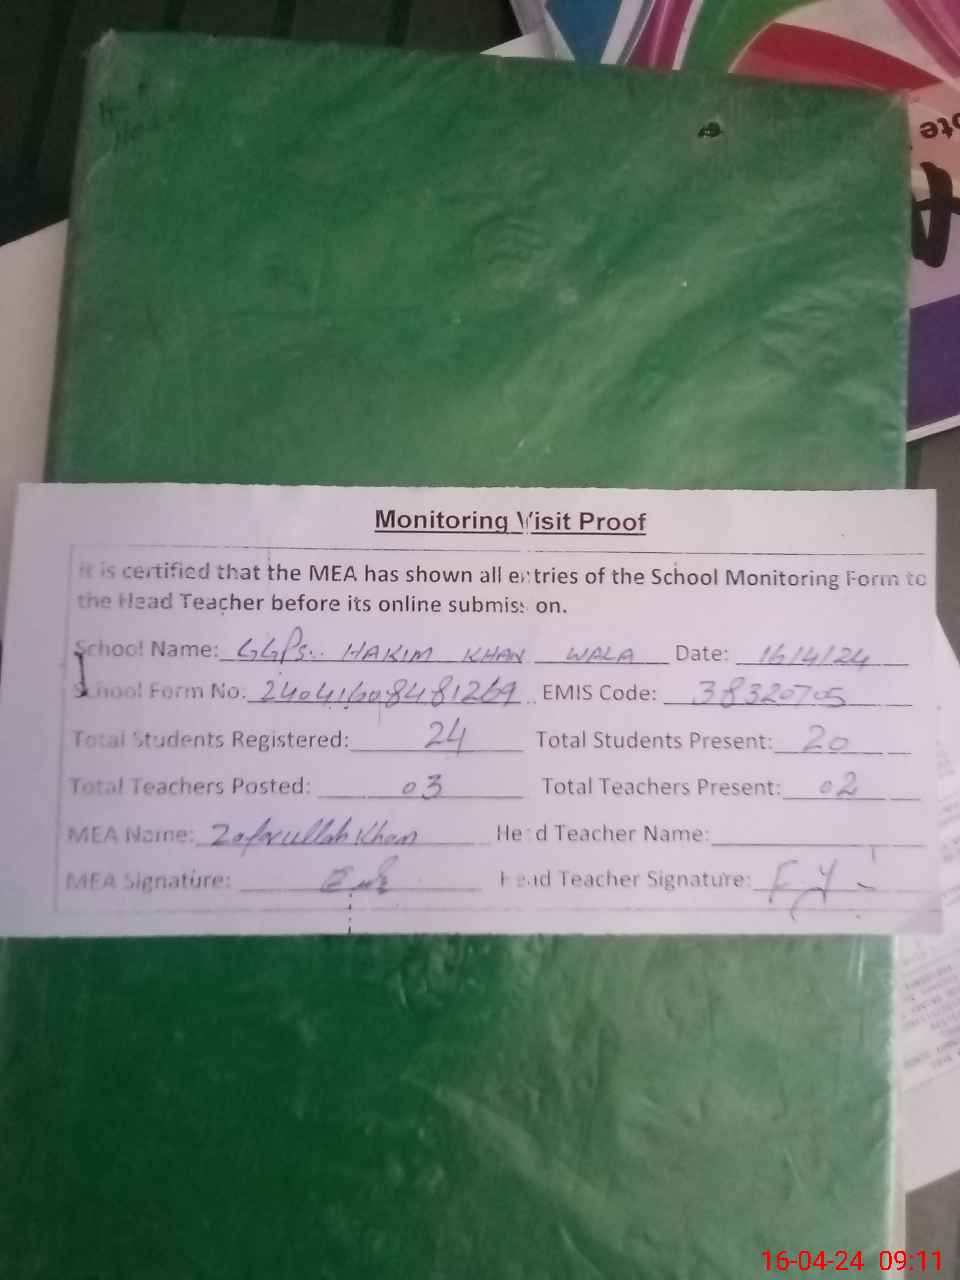 Monitoring Visit Proof
It is certified that the MEA has shown all entries of the School Monitoring Form to
the Head Teacher before its online submission.
School Name: GGPS.. HAKIM KHAN WALA Date: 16/4/24
School Form No: 24041608481269 EMIS Code: 38320705
Total Students Registered: 24 Total Students Present: 20
Total Teachers Posted: 03 Total Teachers Present: 02
MEA Name: Zafarullah Khan Head Teacher Name:
MEA Signature: Head Teacher Signature:
16-04-24 09:11